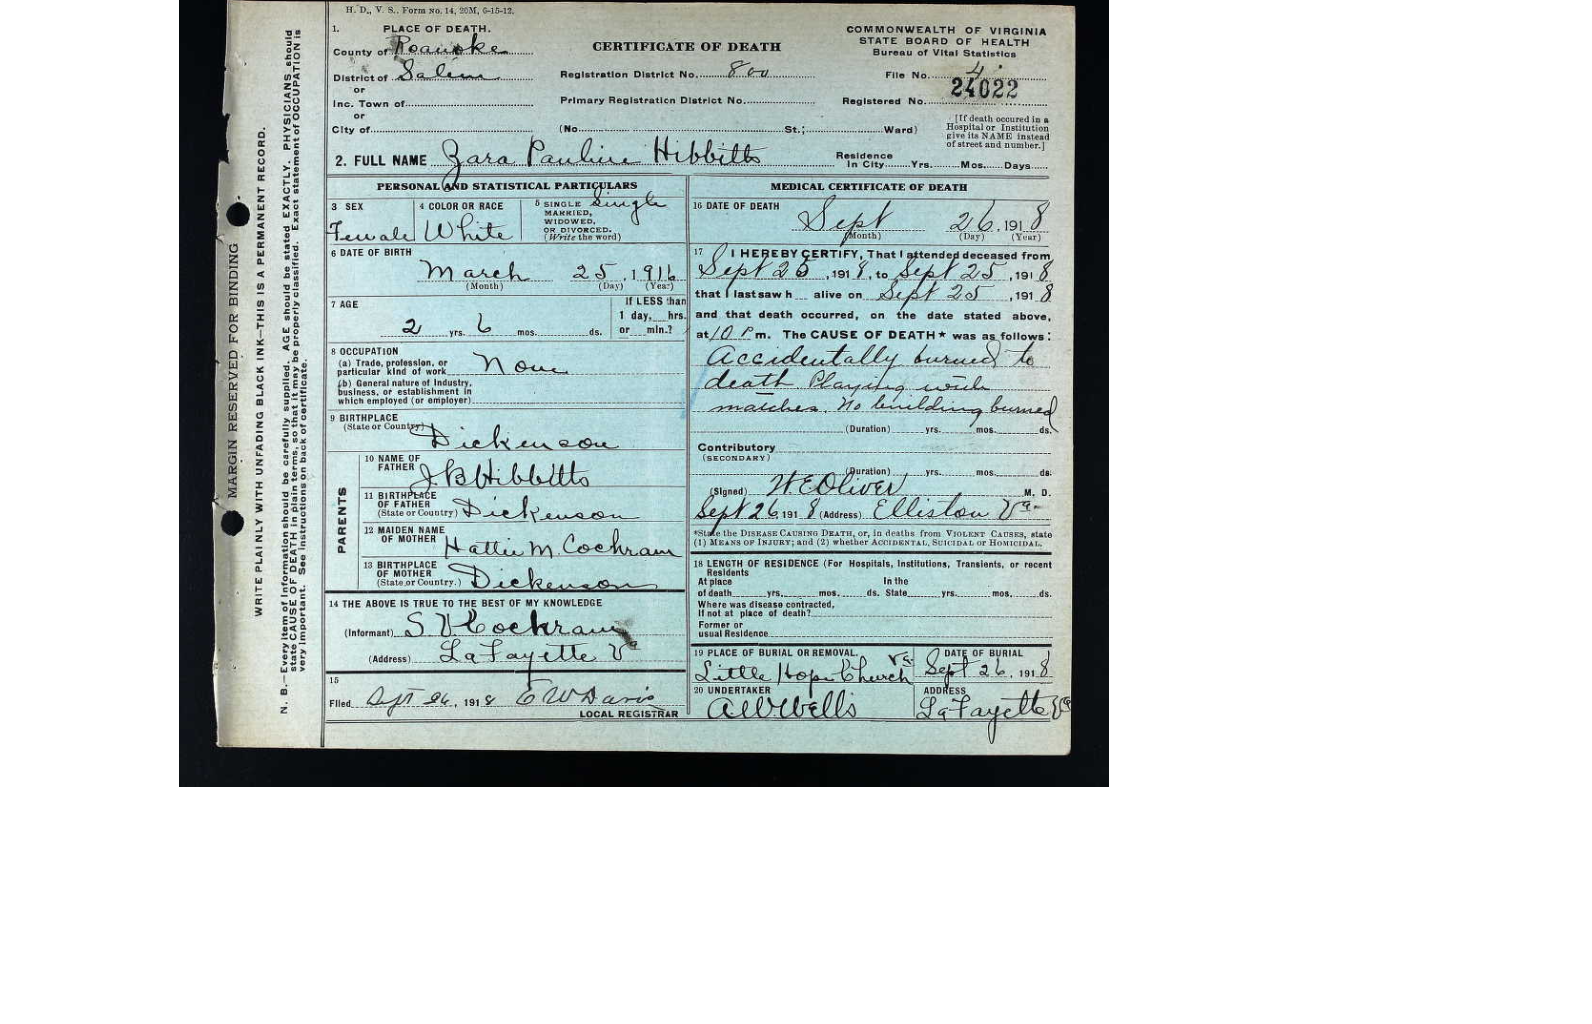 H. D., V. S., Form No. 14, 20M, 6-15-12.
1. PLACE OF DEATH.
County of Roanoke
District of Salem
or
Inc. Town of
or
City of
CERTIFICATE OF DEATH
Registration District No. 800
Primary Registration District No.
(No. St.; Ward)
COMMONWEALTH OF VIRGINIA
STATE BOARD OF HEALTH
Bureau of Vital Statistics
File No. 4
24022
Registered No.
[If death occured in a
Hospital or Institution
give its NAME instead
of street and number.]
2. FULL NAME Zara Pauline Hibbitts
Residence
In City Yrs. Mos. Days
PERSONAL AND STATISTICAL PARTICULARS
3 SEX
Female
4 COLOR OR RACE
White
5 SINGLE Single
MARRIED,
WIDOWED,
OR DIVORCED.
(Write the word)
6 DATE OF BIRTH
March 25, 1916
(Month) (Day) (Year)
7 AGE
2 yrs. 6 mos. ds.
If LESS than
1 day, hrs.
or min.?
8 OCCUPATION
(a) Trade, profession, or
particular kind of work None
(b) General nature of Industry,
business, or establishment in
which employed (or employer)
9 BIRTHPLACE
(State or Country)
Dickenson
PARENTS
10 NAME OF
FATHER J. B Hibbitts
11 BIRTHPLACE
OF FATHER
(State or Country) Dickenson
12 MAIDEN NAME
OF MOTHER Hattie M. Cochram
13 BIRTHPLACE
OF MOTHER
(State or Country.) Dickenson
14 THE ABOVE IS TRUE TO THE BEST OF MY KNOWLEDGE
(Informant) S V Cochram
(Address) LaFayette Va
15
Filed Sept 26, 1918 E W Davis
LOCAL REGISTRAR
MEDICAL CERTIFICATE OF DEATH
16 DATE OF DEATH
Sept 26, 1918
(Month) (Day) (Year)
17 I HEREBY CERTIFY, That I attended deceased from
Sept 25, 1918, to Sept 25, 1918
that I last saw h alive on Sept 25, 1918
and that death occurred, on the date stated above,
at 10 P m. The CAUSE OF DEATH* was as follows:
Accidentally burned to
death Playing with
matches. No building burned
(Duration) yrs. mos. ds.
Contributory
(SECONDARY)
(Duration) yrs. mos. ds.
(Signed) W. E Oliver M. D.
Sept 26, 1918 (Address) Elliston Va
*State the DISEASE CAUSING DEATH, or, in deaths from VIOLENT CAUSES, state
(1) MEANS OF INJURY; and (2) whether ACCIDENTAL, SUICIDAL or HOMICIDAL.
18 LENGTH OF RESIDENCE (For Hospitals, Institutions, Transients, or recent
Residents
At place In the
of death yrs. mos. ds. State yrs. mos. ds.
Where was disease contracted,
If not at place of death?
Former or
usual Residence
19 PLACE OF BURIAL OR REMOVAL.
Little Hope Church Va
DATE OF BURIAL
Sept 26, 1918
20 UNDERTAKER
ADDRESS
LaFayette Va
MARGIN RESERVED FOR BINDING
WRITE PLAINLY WITH UNFADING BLACK INK—THIS IS A PERMANENT RECORD.
N. B.—Every item of information should be carefully supplied. AGE should be stated EXACTLY. PHYSICIANS should
state CAUSE OF DEATH in plain terms, so that it may be properly classified. Exact statement of OCCUPATION is
very important. See instructions on back of certificate.